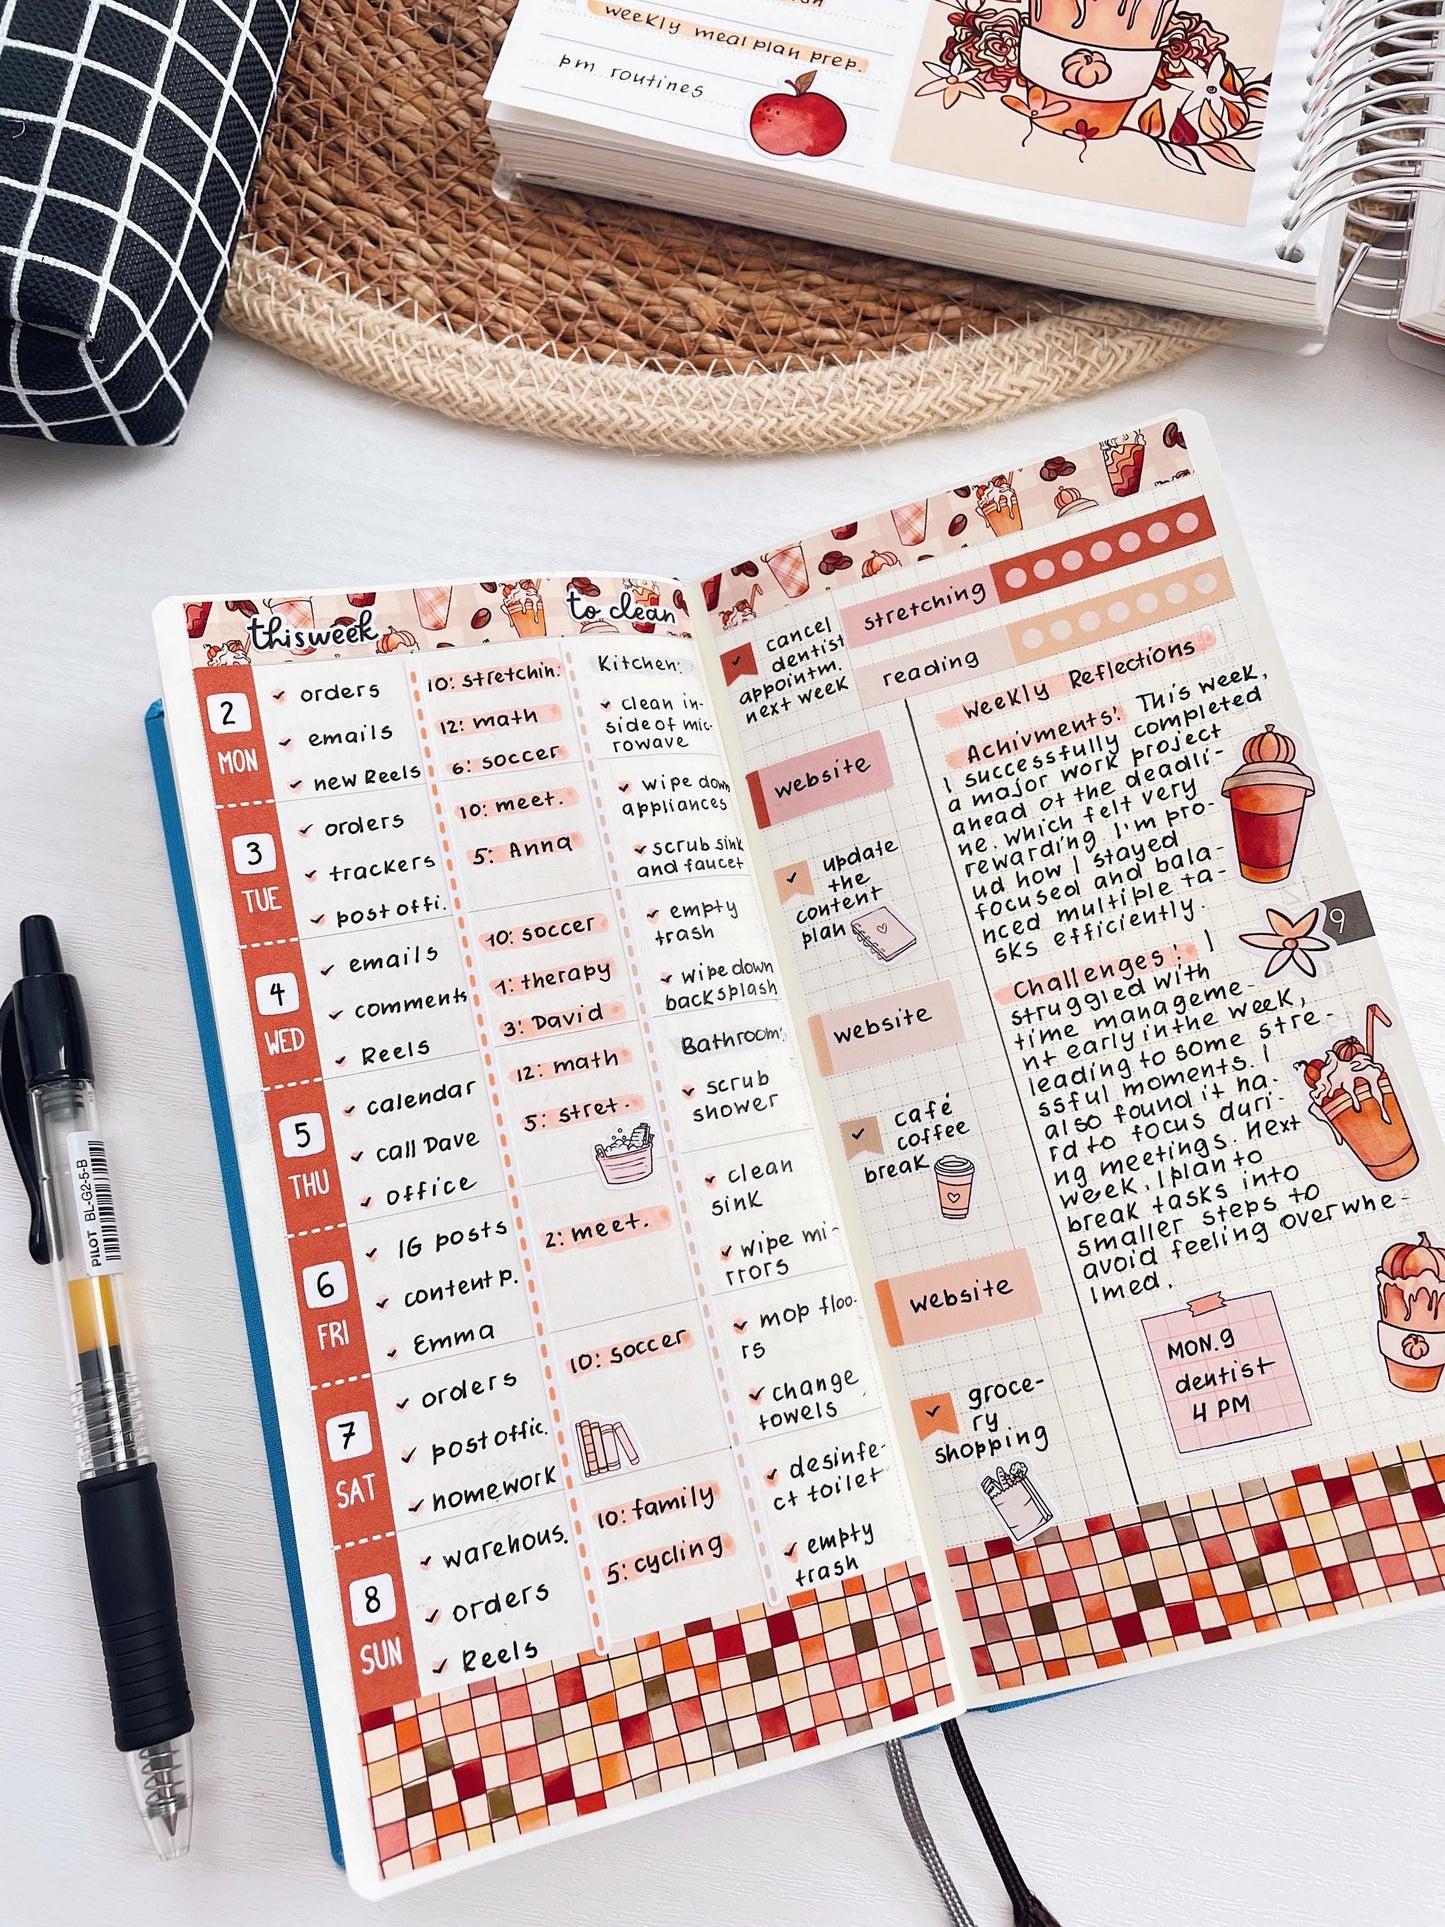 weekly meal plan prep.
pm routines
this week
to clean
2
MON
orders
emails
new Reels
10: stretchin.
12: math
6: soccer
3
TUE
orders
trackers
post offi.
10: meet.
5: Anna
4
WED
emails
comments
Reels
10: soccer
1: therapy
3: David
5
THU
calendar
call Dave
office
12: math
5: stret.
6
FRI
IG posts
content p.
Emma
2: meet.
7
SAT
orders
post offic.
homework
10: soccer
8
SUN
warehous.
orders
Reels
10: family
5: cycling
Kitchen:
clean in-
side of mic-
rowave
wipe down
appliances
scrub sink
and faucet
empty
trash
wipe down
backsplash
Bathroom:
scrub
shower
clean
sink
wipe mi-
rrors
mop floo-
rs
change
towels
desinfe-
ct toilet
empty
trash
cancel
dentist
appointm.
next week
website
update
the
content
plan
website
café
coffee
break
website
groce-
ry
shopping
stretching
reading
Weekly Reflections
Achivments: This week,
I successfully completed
a major work project
ahead of the deadli-
ne, which felt very
rewarding. I'm pro-
ud how I stayed
focused and bala-
nced multiple ta-
sks efficiently.
Challenges: I
struggled with
time manageme-
nt early in the week,
leading to some stre-
ssful moments. I
also found it ha-
rd to focus duri-
ng meetings. Next
week, I plan to
break tasks into
smaller steps to
avoid feeling overwhe-
lmed.
MON.9
dentist
4 PM
9
PILOT BL-G2-5-B